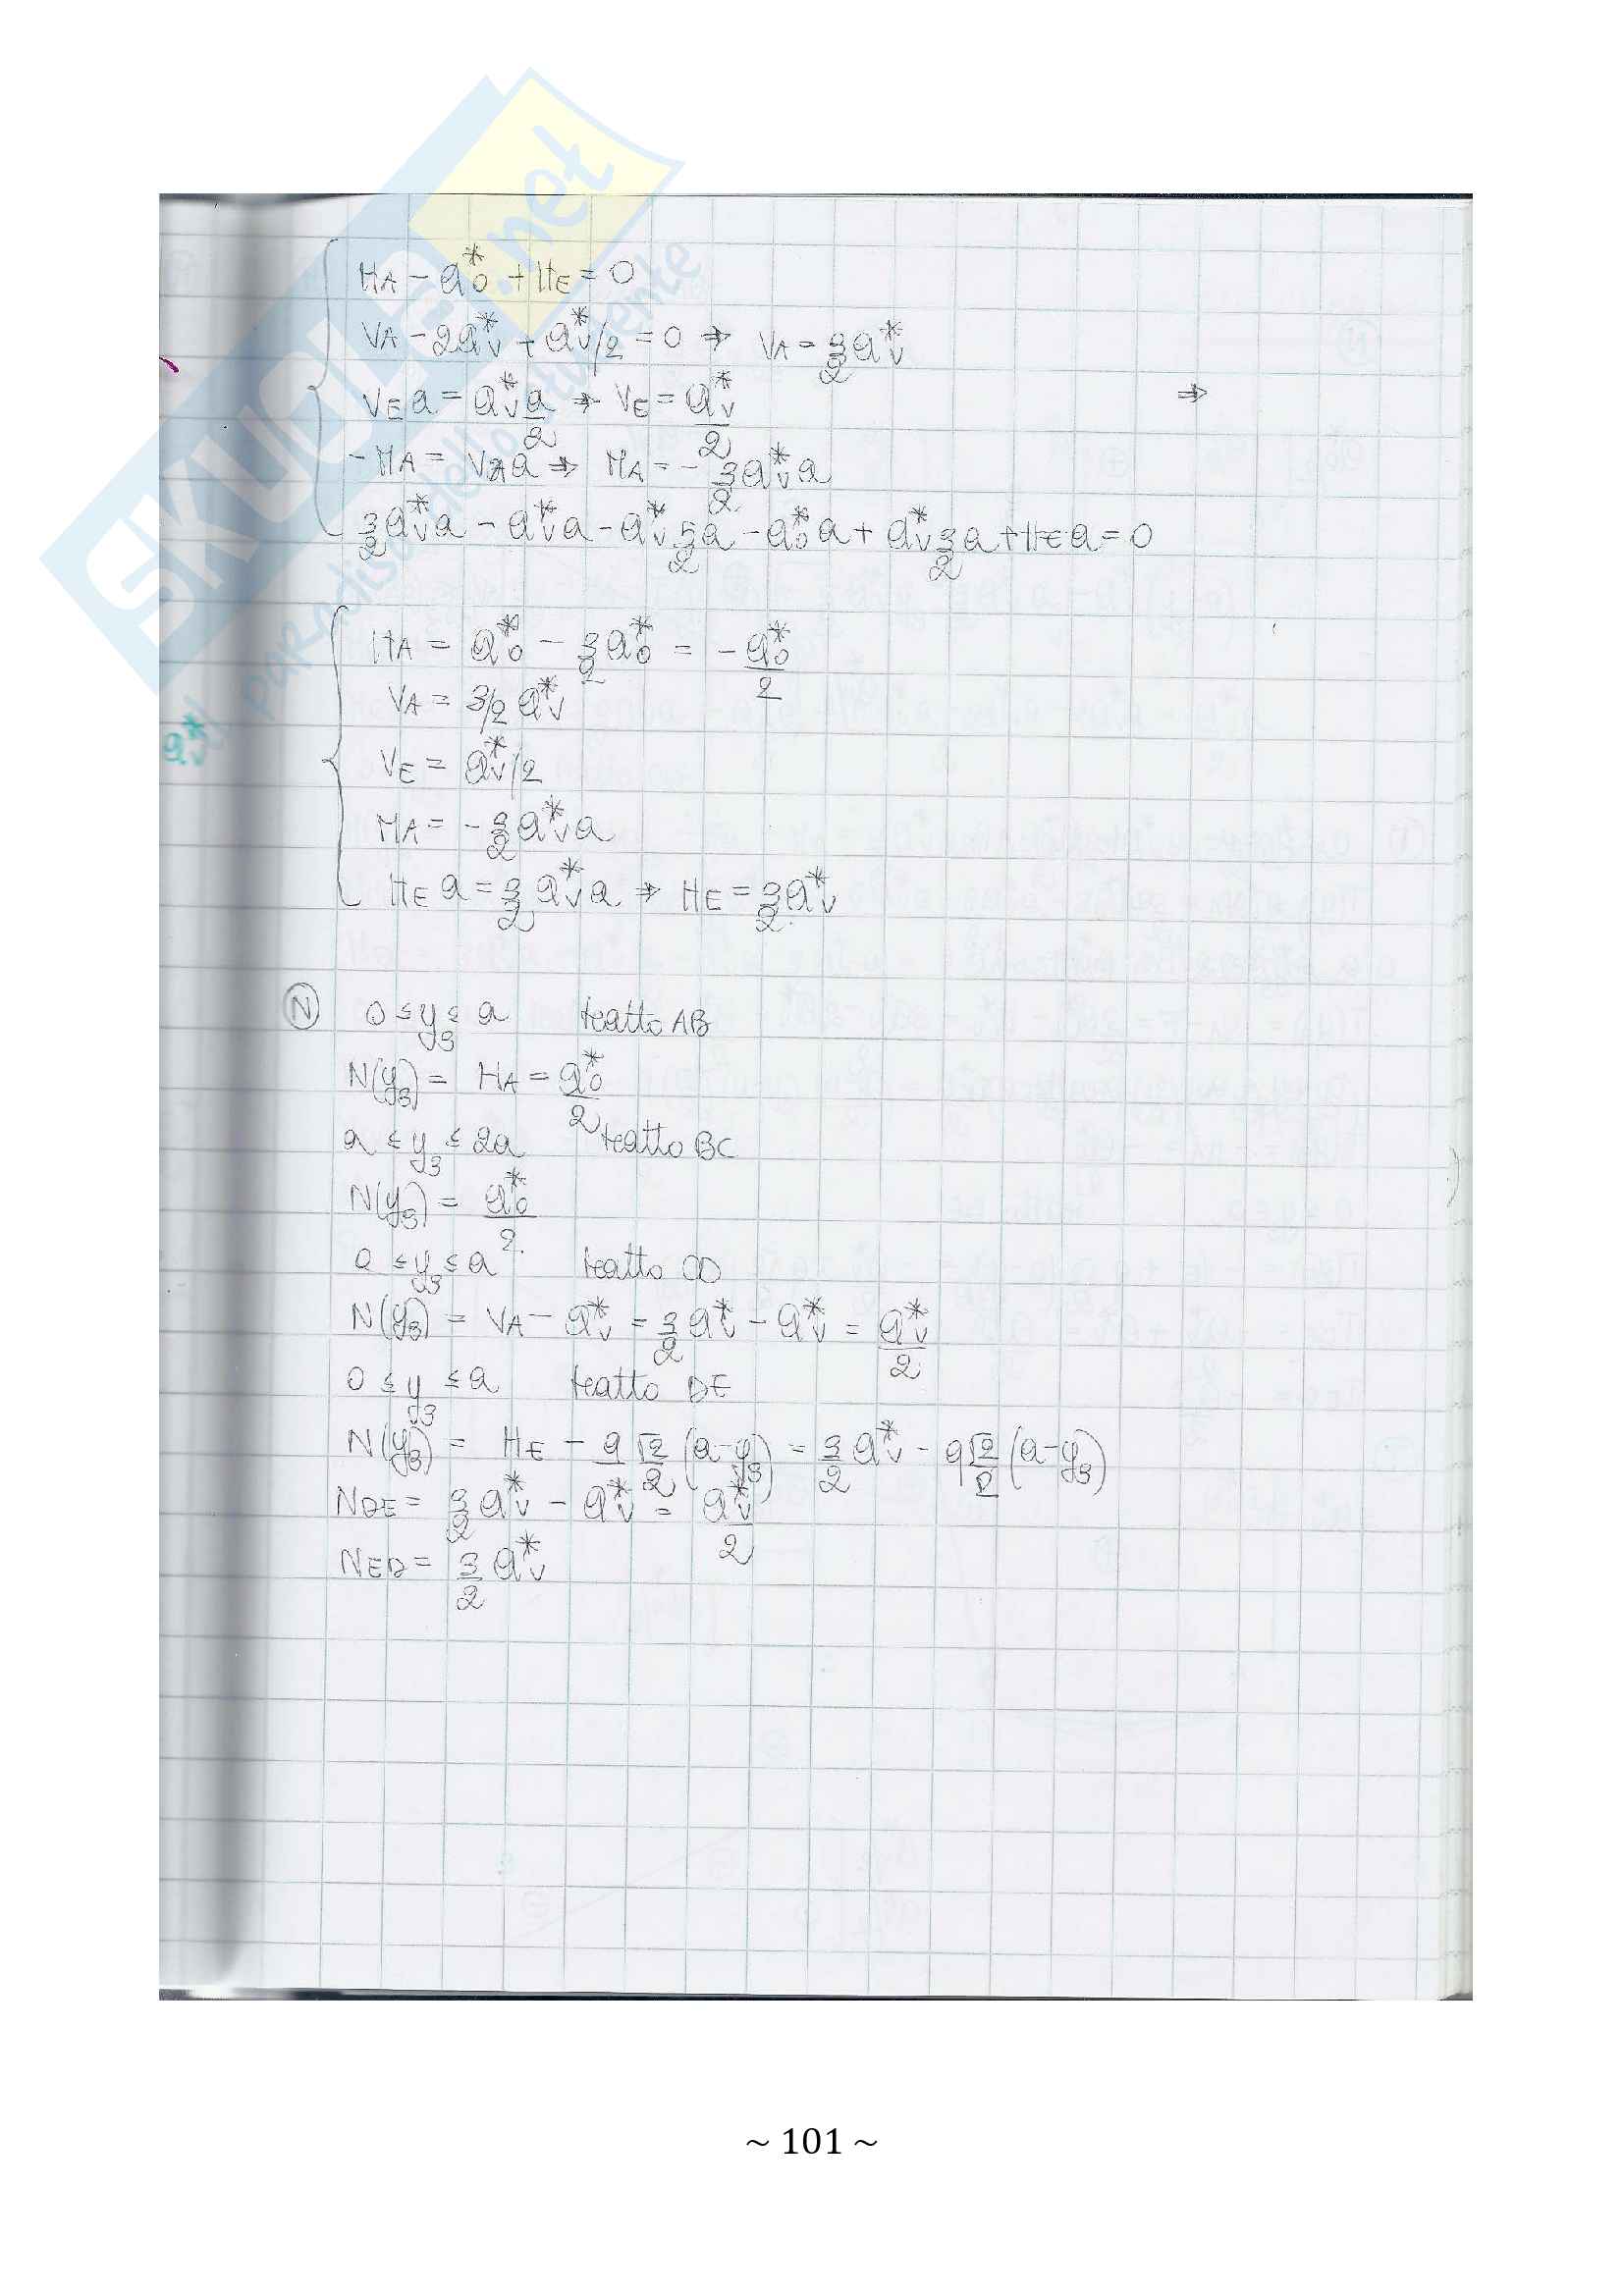 SKUOLA.net
il paradiso dello studente
HA - Q*o + HE = 0
VA - 2Q*v + Q*v/2 = 0 ⇒ VA = 3/2 Q*v
VE a = Q*v a/2 ⇒ VE = Q*v/2 ⇒
- MA = VA a ⇒ MA = - 3/2 Q*v a
3/2 Q*v a - Q*v a - Q*v 5/2 a - Q*o a + Q*v 3/2 a + HE a = 0
HA = Q*o - 3/2 Q*o = - Q*o/2
VA = 3/2 Q*v
Q*v
VE = Q*v/2
MA = - 3/2 Q*v a
HE a = 3/2 Q*v a ⇒ HE = 3/2 Q*v
N 0 ≤ y3 ≤ a tratto AB
N(y3) = HA = Q*o/2
a ≤ y3 ≤ 2a tratto BC
N(y3) = Q*o/2
0 ≤ y3 ≤ a tratto CD
N(y3) = VA - Q*v = 3/2 Q*v - Q*v = Q*v/2
0 ≤ y3 ≤ a tratto DE
N(y3) = HE - q √2/2 (a - y3) = 3/2 Q*v - q √2/2 (a - y3)
NDE = 3/2 Q*v - Q*v = Q*v/2
NED = 3/2 Q*v
~ 101 ~